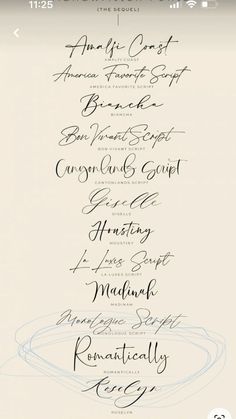 11:25
(THE SEQUEL)
Amalfi Coast
AMALFI COAST
America Favorite Script
AMERICA FAVORITE SCRIPT
Biancha
BIANCHA
Bon Vivant Script
BON VIVANT SCRIPT
Canyonlands Script
CANYONLANDS SCRIPT
Giselle
GISELLE
Houstiny
HOUSTINY
La Luxes Script
LA LUXES SCRIPT
Madinah
MADINAH
Monologue Script
MONOLOGUE SCRIPT
Romantically
ROMANTICALLY
Roselyn
ROSELYN